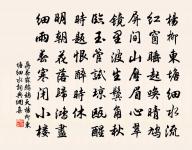 楊柳東塘細水流
紅窗睡起喚晴鳩
屏間山壓眉心翠
鏡裏波生鬢角秋
臨玉管試瓊甌
醒時題恨醉時休
明朝花落歸鴻盡
細雨春寒閉小樓
天楊柳東
塘細水流